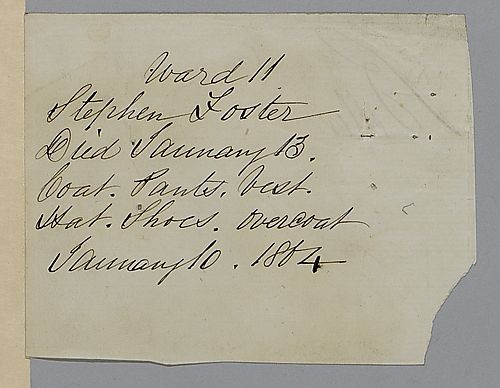 Ward 11
Stephen Foster
Died January 13.
Coat. Pants. Vest.
Hat. Shoes. Overcoat
January 10. 1864